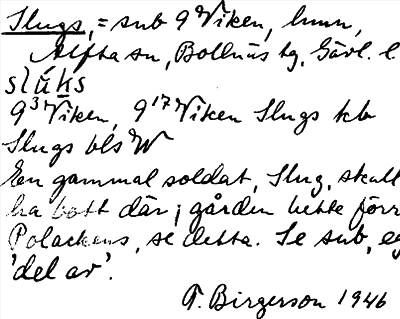 Slugs, = sub 9 Viken, hmn,
Alfta sn, Bollnäs tg, Gävl. l.
slúks
9³ Viken, 9¹⁷ Viken Slugs tcb
Slugs bls W
En gammal soldat, Slug, skall
ha bott där; gården hette förr
Polackens, se detta. Se sub, eg
'del av'.
T. Birgerson 1946